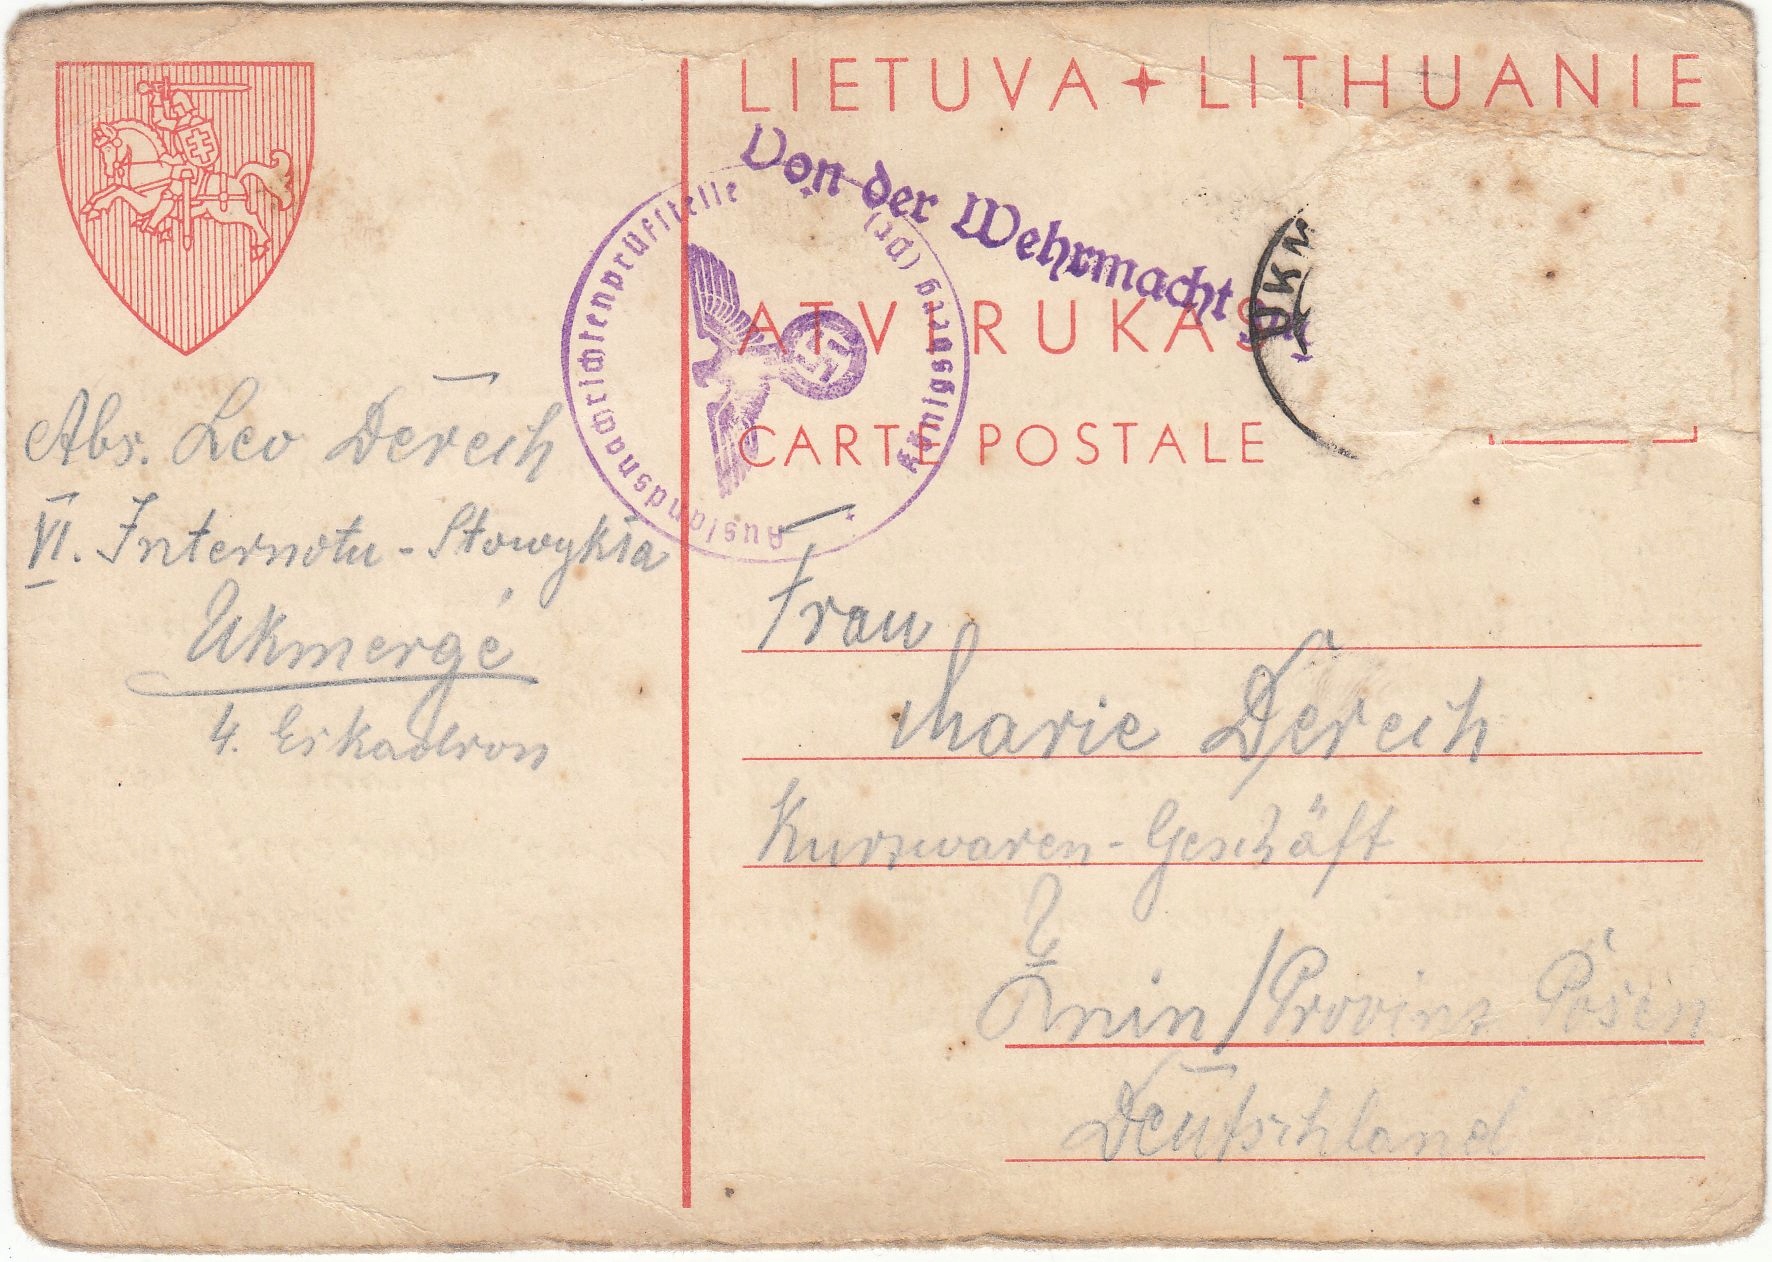 LIETUVA ✦ LITHUANIE
Von der Wehrmacht
Auslandsnachrichtenprüfstelle
Königsberg (Pr)
UKM
ATVIRUKAS
CARTE POSTALE
Abs. Leo Dereich
VI. Internotu - Stowykla
Ukmergė
4. Eskadron
Frau
Marie Dereich
Kurzwaren-Geschäft
Znin / Provinz Posen
Deutschland